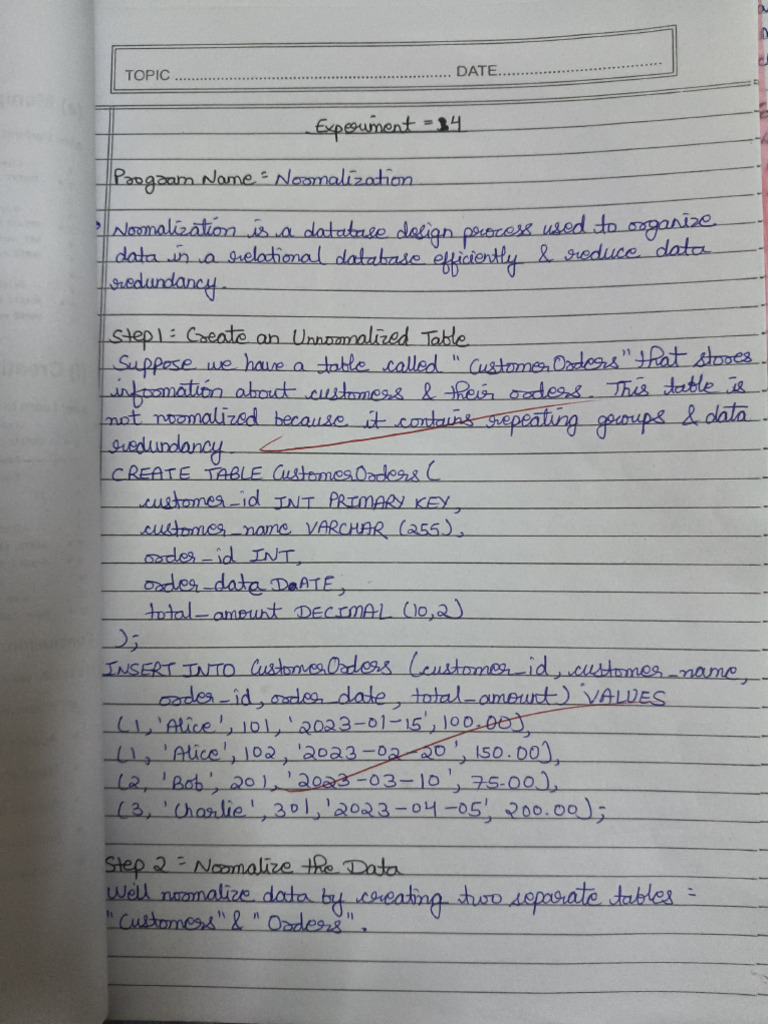 TOPIC ........................ DATE........................
Experiment = 4
Program Name = Normalization
Normalization is a database design process used to organize
data in a relational database efficiently & reduce data
redundancy.
Step 1 = Create an Unnormalized Table
Suppose we have a table called "CustomerOrders" that stores
information about customers & their orders. This table is
not normalized because it contains repeating groups & data
redundancy.
CREATE TABLE CustomerOrders (
customer_id INT PRIMARY KEY,
customer_name VARCHAR (255),
order_id INT,
order_data DATE,
total_amount DECIMAL (10,2)
);
INSERT INTO CustomerOrders (customer_id, customer_name,
order_id, order_date, total_amount) VALUES
(1, 'Alice', 101, '2023-01-15', 100.00),
(1, 'Alice', 102, '2023-02-20', 150.00),
(2, 'Bob', 201, '2023-03-10', 75.00),
(3, 'Charlie', 301, '2023-04-05', 200.00);
Step 2 = Normalize the Data
Well normalize data by creating two separate tables =
"Customers" & "Orders".